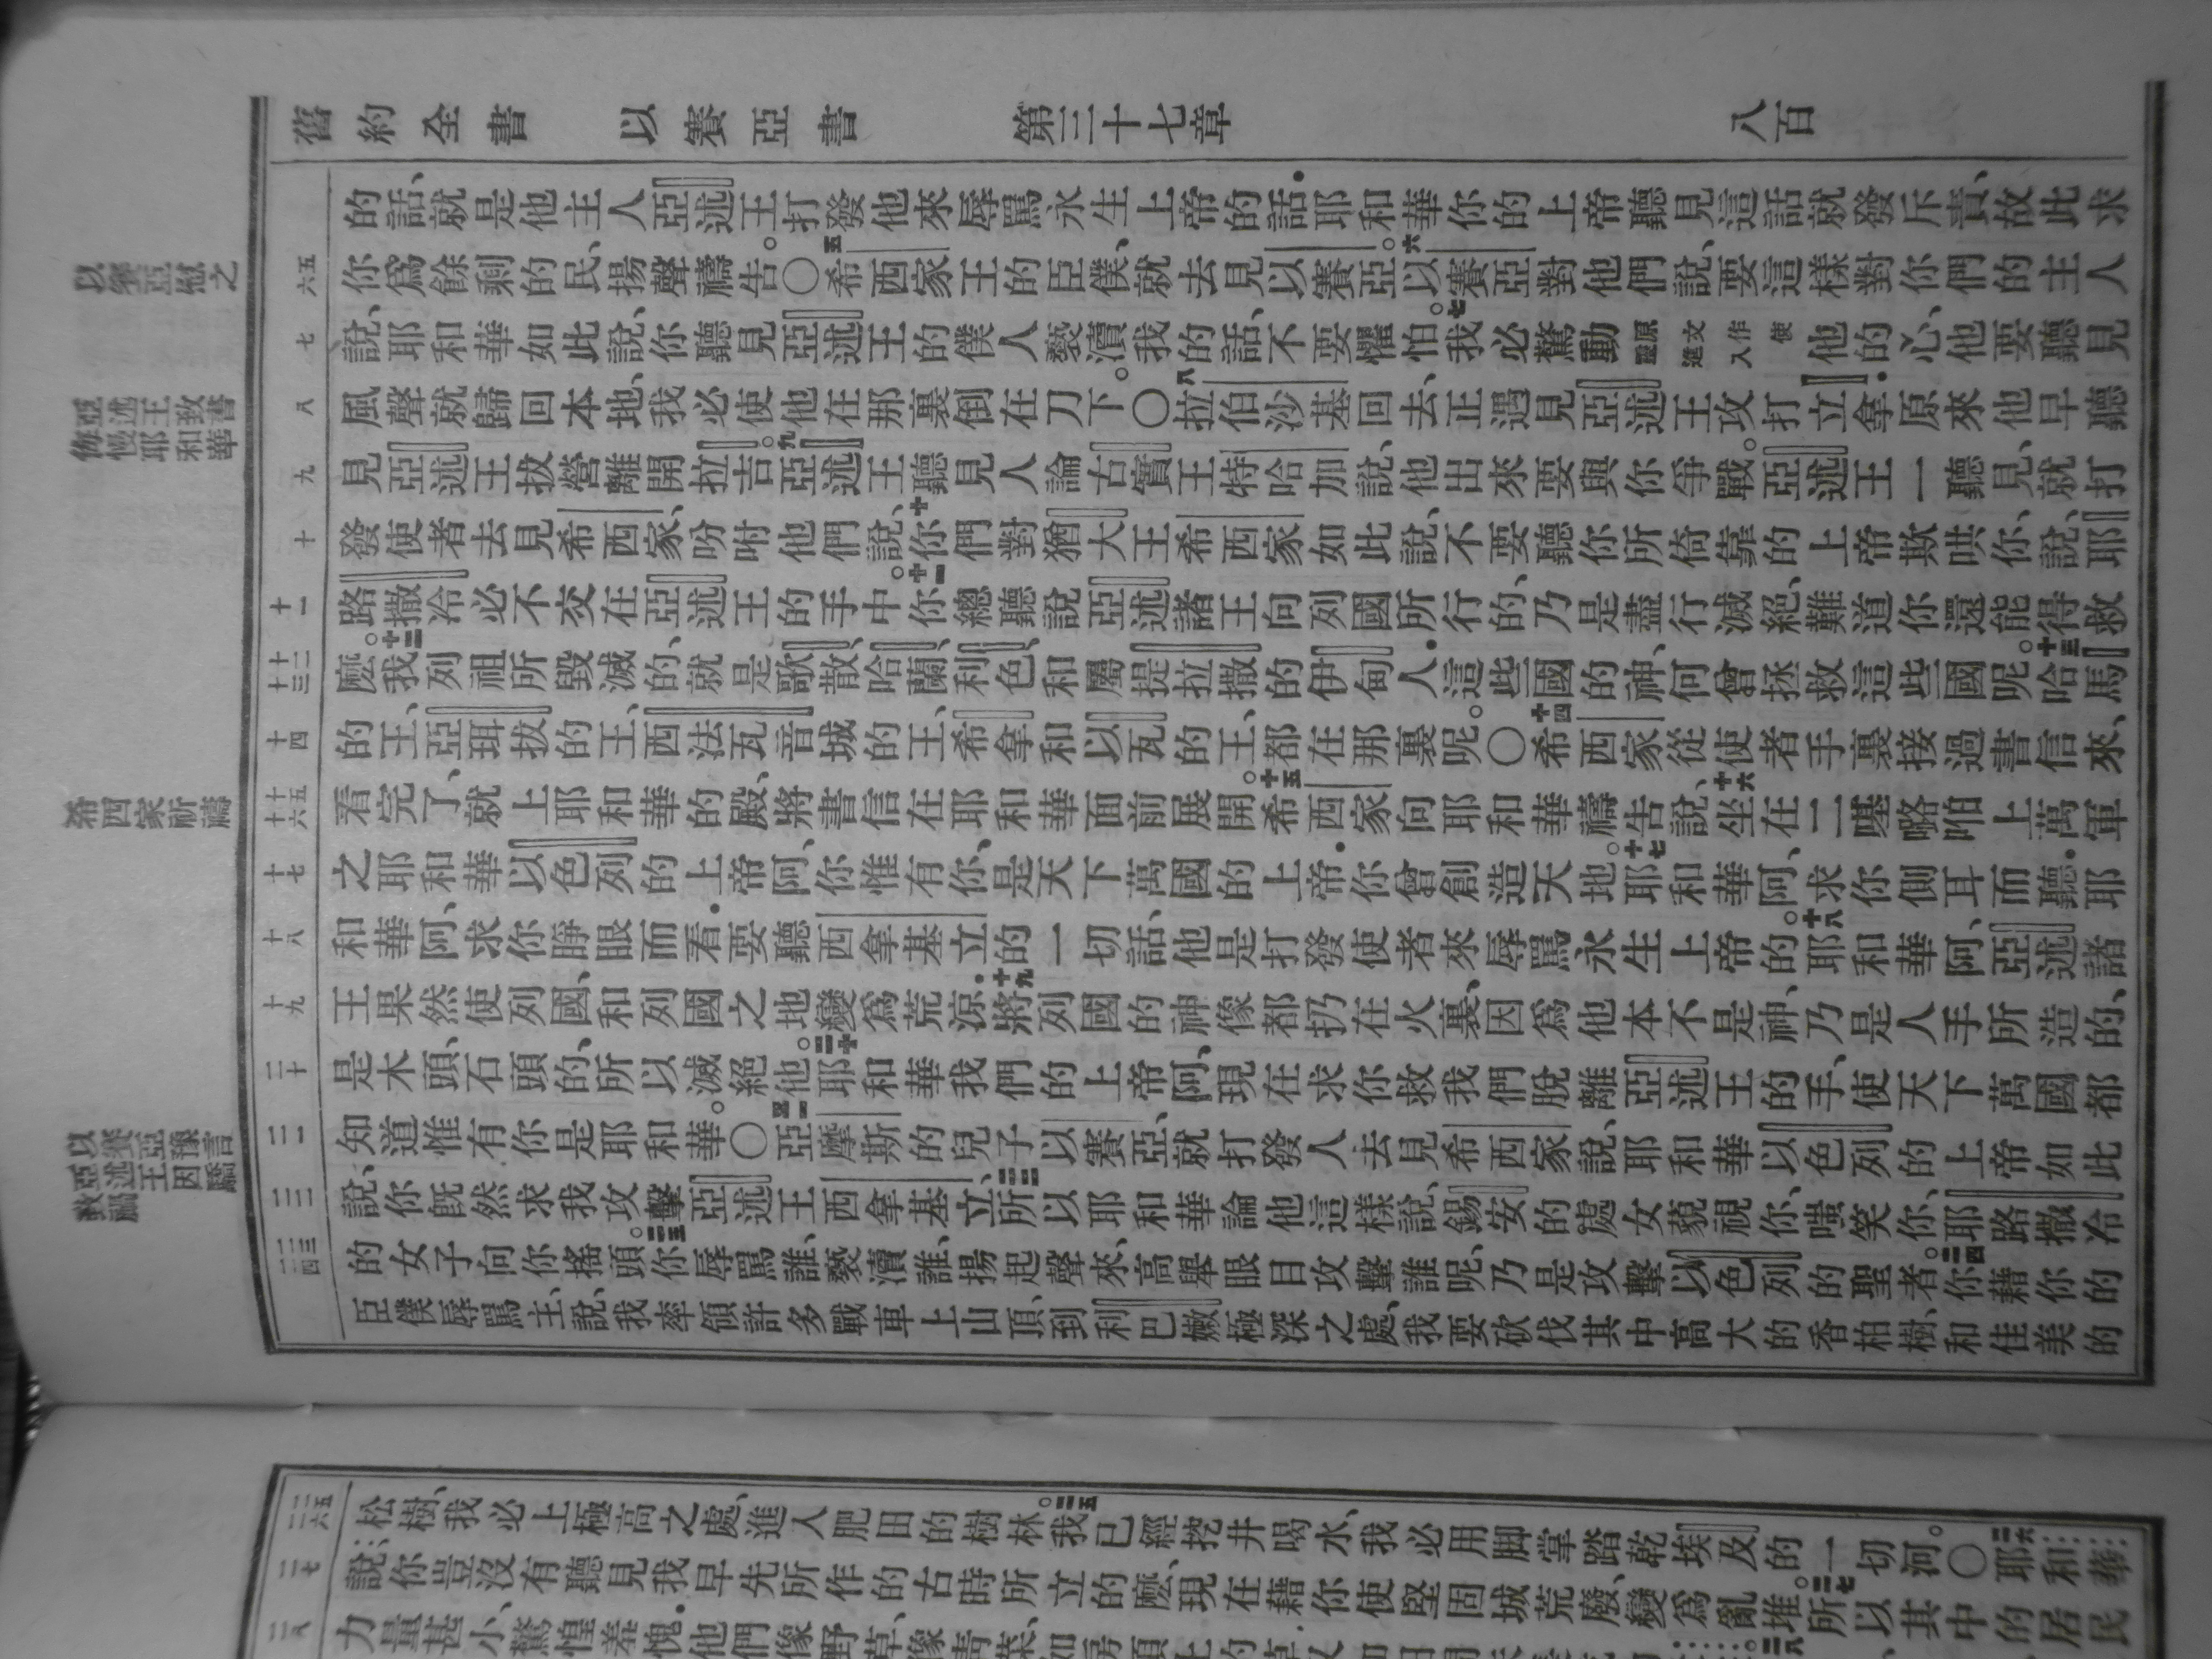 舊約全書 以賽亞書 第三十七章 八百
的話、就是他主人亞述王打發他來辱罵永生上帝的話.耶和華你的上帝聽見這話就發斥責、故此求
六五
你爲餘剩的民、揚聲禱告。○五希西家王的臣僕、就去見以賽亞。六以賽亞對他們說、要這樣對你們的主人
七
說、耶和華如此說、你聽見亞述王的僕人褻瀆我的話、不要懼怕。七我必驚動原文作使靈進入他的心、他要聽見
八
風聲就歸回本地、我必使他在那裏倒在刀下。○八拉伯沙基回去、正遇見亞述王攻打立拿.原來他早聽
九
見亞述王拔營離開拉吉。九亞述王聽見人論古實王特哈加說、他出來要與你爭戰。亞述王一聽見、就打
十
發使者去見希西家、吩咐他們說、十你們對猶大王希西家如此說、不要聽你所倚靠的上帝欺哄你、說、耶
十一
路撒冷必不交在亞述王的手中。十一你總聽說亞述諸王向列國所行的、乃是盡行滅絕、難道你還能得救
十三十二
麼。十二我列祖所毀滅的、就是歌散、哈蘭、利色、和屬提拉撒的伊甸人.這些國的神、何曾拯救這些國呢。十三哈馬
十四
的王、亞珥拔的王、西法瓦音城的王、希拿和以瓦的王、都在那裏呢。○十四希西家從使者手裏接過書信來、
十六十五
看完了、就上耶和華的殿、將書信在耶和華面前展開。十五希西家向耶和華禱告說、十六坐在二𠼻嚕啪上萬軍
十七
之耶和華以色列的上帝阿、你惟有你、是天下萬國的上帝.你曾創造天地。十七耶和華阿、求你側耳而聽.耶
十八
和華阿、求你睜眼而看.要聽西拿基立的一切話、他是打發使者來辱罵永生上帝的。十八耶和華阿、亞述諸
十九
王果然使列國、和列國之地變爲荒涼.十九將列國的神像都扔在火裏、因爲他本不是神、乃是人手所造的、
二十
是木頭、石頭的、所以滅絕他。二十耶和華我們的上帝阿、現在求你救我們脫離亞述王的手、使天下萬國都
二一
知道惟有你是耶和華。○二一亞摩斯的兒子以賽亞、就打發人去見希西家說、耶和華以色列的上帝如此
二二
說、你既然求我攻擊亞述王西拿基立、二二所以耶和華論他這樣說、錫安的處女藐視你、嗤笑你、耶路撒冷
二四二三
的女子向你搖頭。二三你辱罵誰、褻瀆誰、揚起聲來、高舉眼目攻擊誰呢、乃是攻擊以色列的聖者。二四你藉你的
臣僕辱罵主、說、我率領許多戰車上山頂、到利巴嫩極深之處、我要砍伐其中高大的香柏樹、和佳美的
以賽亞慰之
亞述王致書
侮慢耶和華
希西家祈禱
以賽亞豫言
亞述王因驕
致禍
二六二五
松樹、我必上極高之處、進入肥田的樹林。二五我已經挖井喝水、我必用脚掌踏乾埃及的一切河。○二六耶和華
二七
說、你豈沒有聽見、我早先所作的古時所立的麼、現在藉你使堅固城荒廢、變爲亂堆。二七所以其中的居民
二八
力量甚小、驚惶羞愧.他們像野草、像青菜、如房頂上的草、